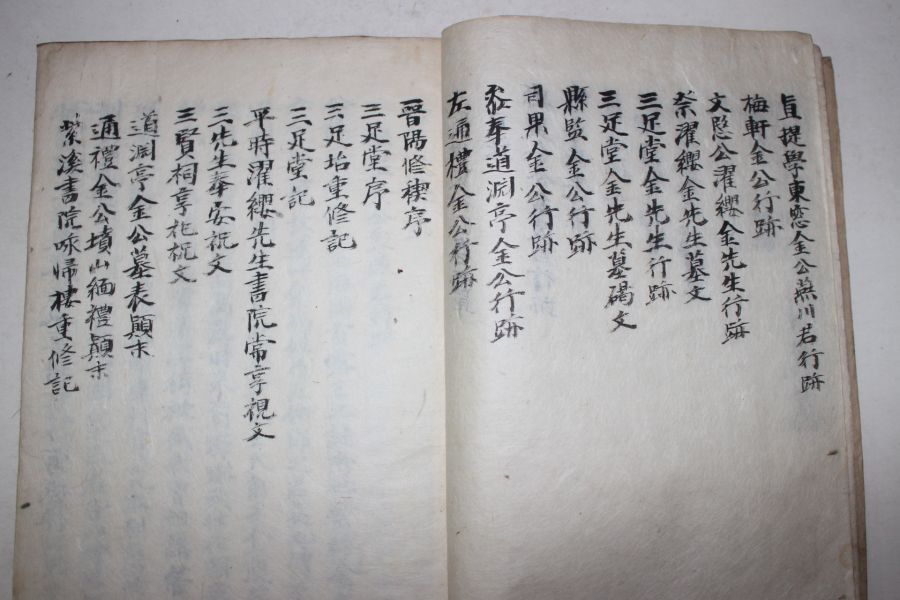 直提學東窓金公兼川君行跡
梅軒金公行跡
文愍公濯纓金先生行跡
祭濯纓金先生墓文
三足堂金先生行跡
三足堂金先生墓碣文
縣監金公行跡
司果金公行跡
參奉道淵亭金公行跡
左通禮金公行跡
晉陽修稧序
三足堂序
三足坮重修記
三足堂記
平時濯纓先生書院常享祝文
三先生奉安祝文
三賢祠享祀祝文
道淵亭金公墓表顛末
通禮金公墳山緬禮顛末
紫溪書院咏歸樓重修記